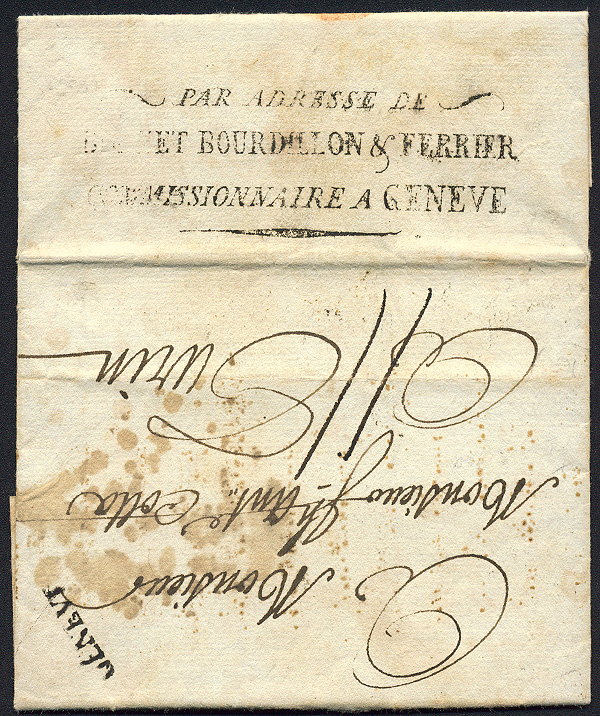 PAR ADRESSE DE
BOURDILLON & FERRIER
COMMISSIONNAIRE A GENEVE
A Monsieur
Monsieur Ant. Cotta
A Turin
GENEVE